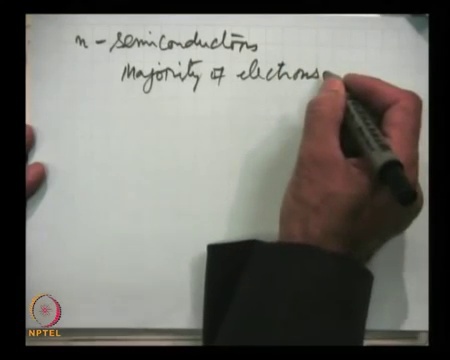 n - semiconductors
Majority of electrons
NPTEL